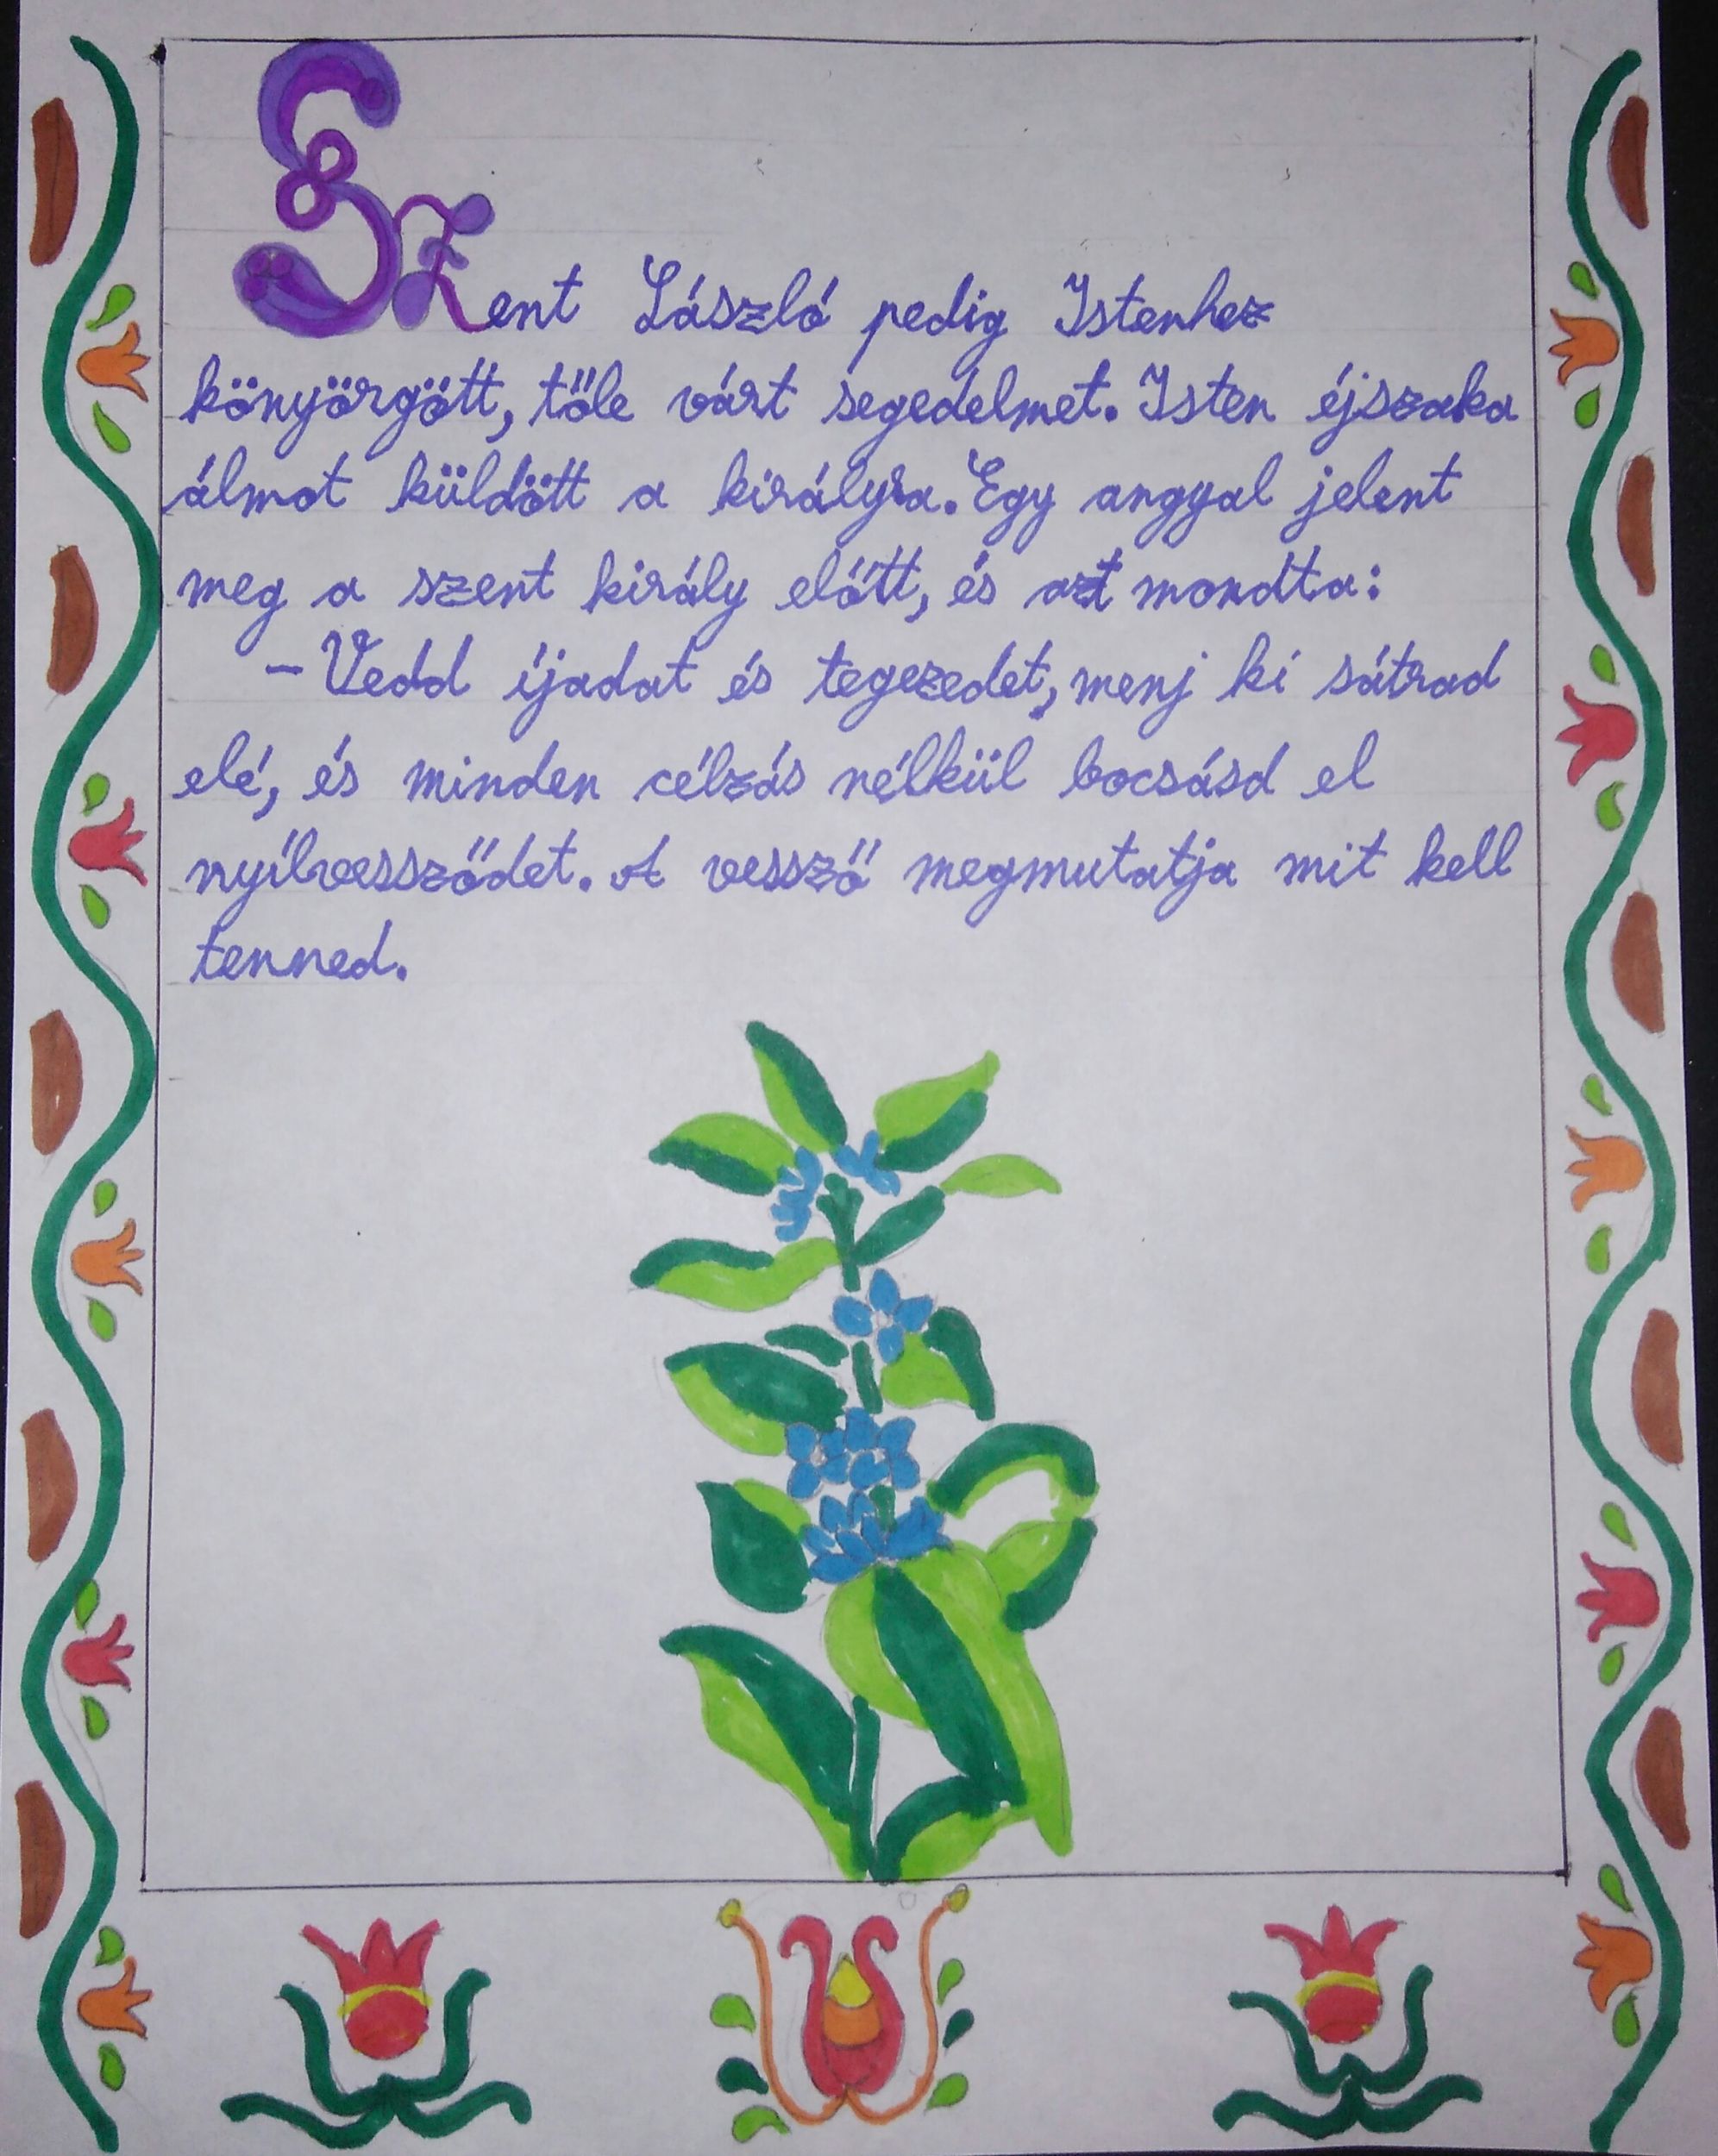 Szent László pedig Istenhez
könyörgött, tőle várt segedelmet. Isten éjszaka
álmot küldött a királyra. Egy angyal jelent
meg a szent király előtt, és azt mondta:
– Vedd íjadat és tegezedet, menj ki sátrad
elé, és minden célzás nélkül bocsásd el
nyílvessződet. A vessző megmutatja mit kell
tenned.